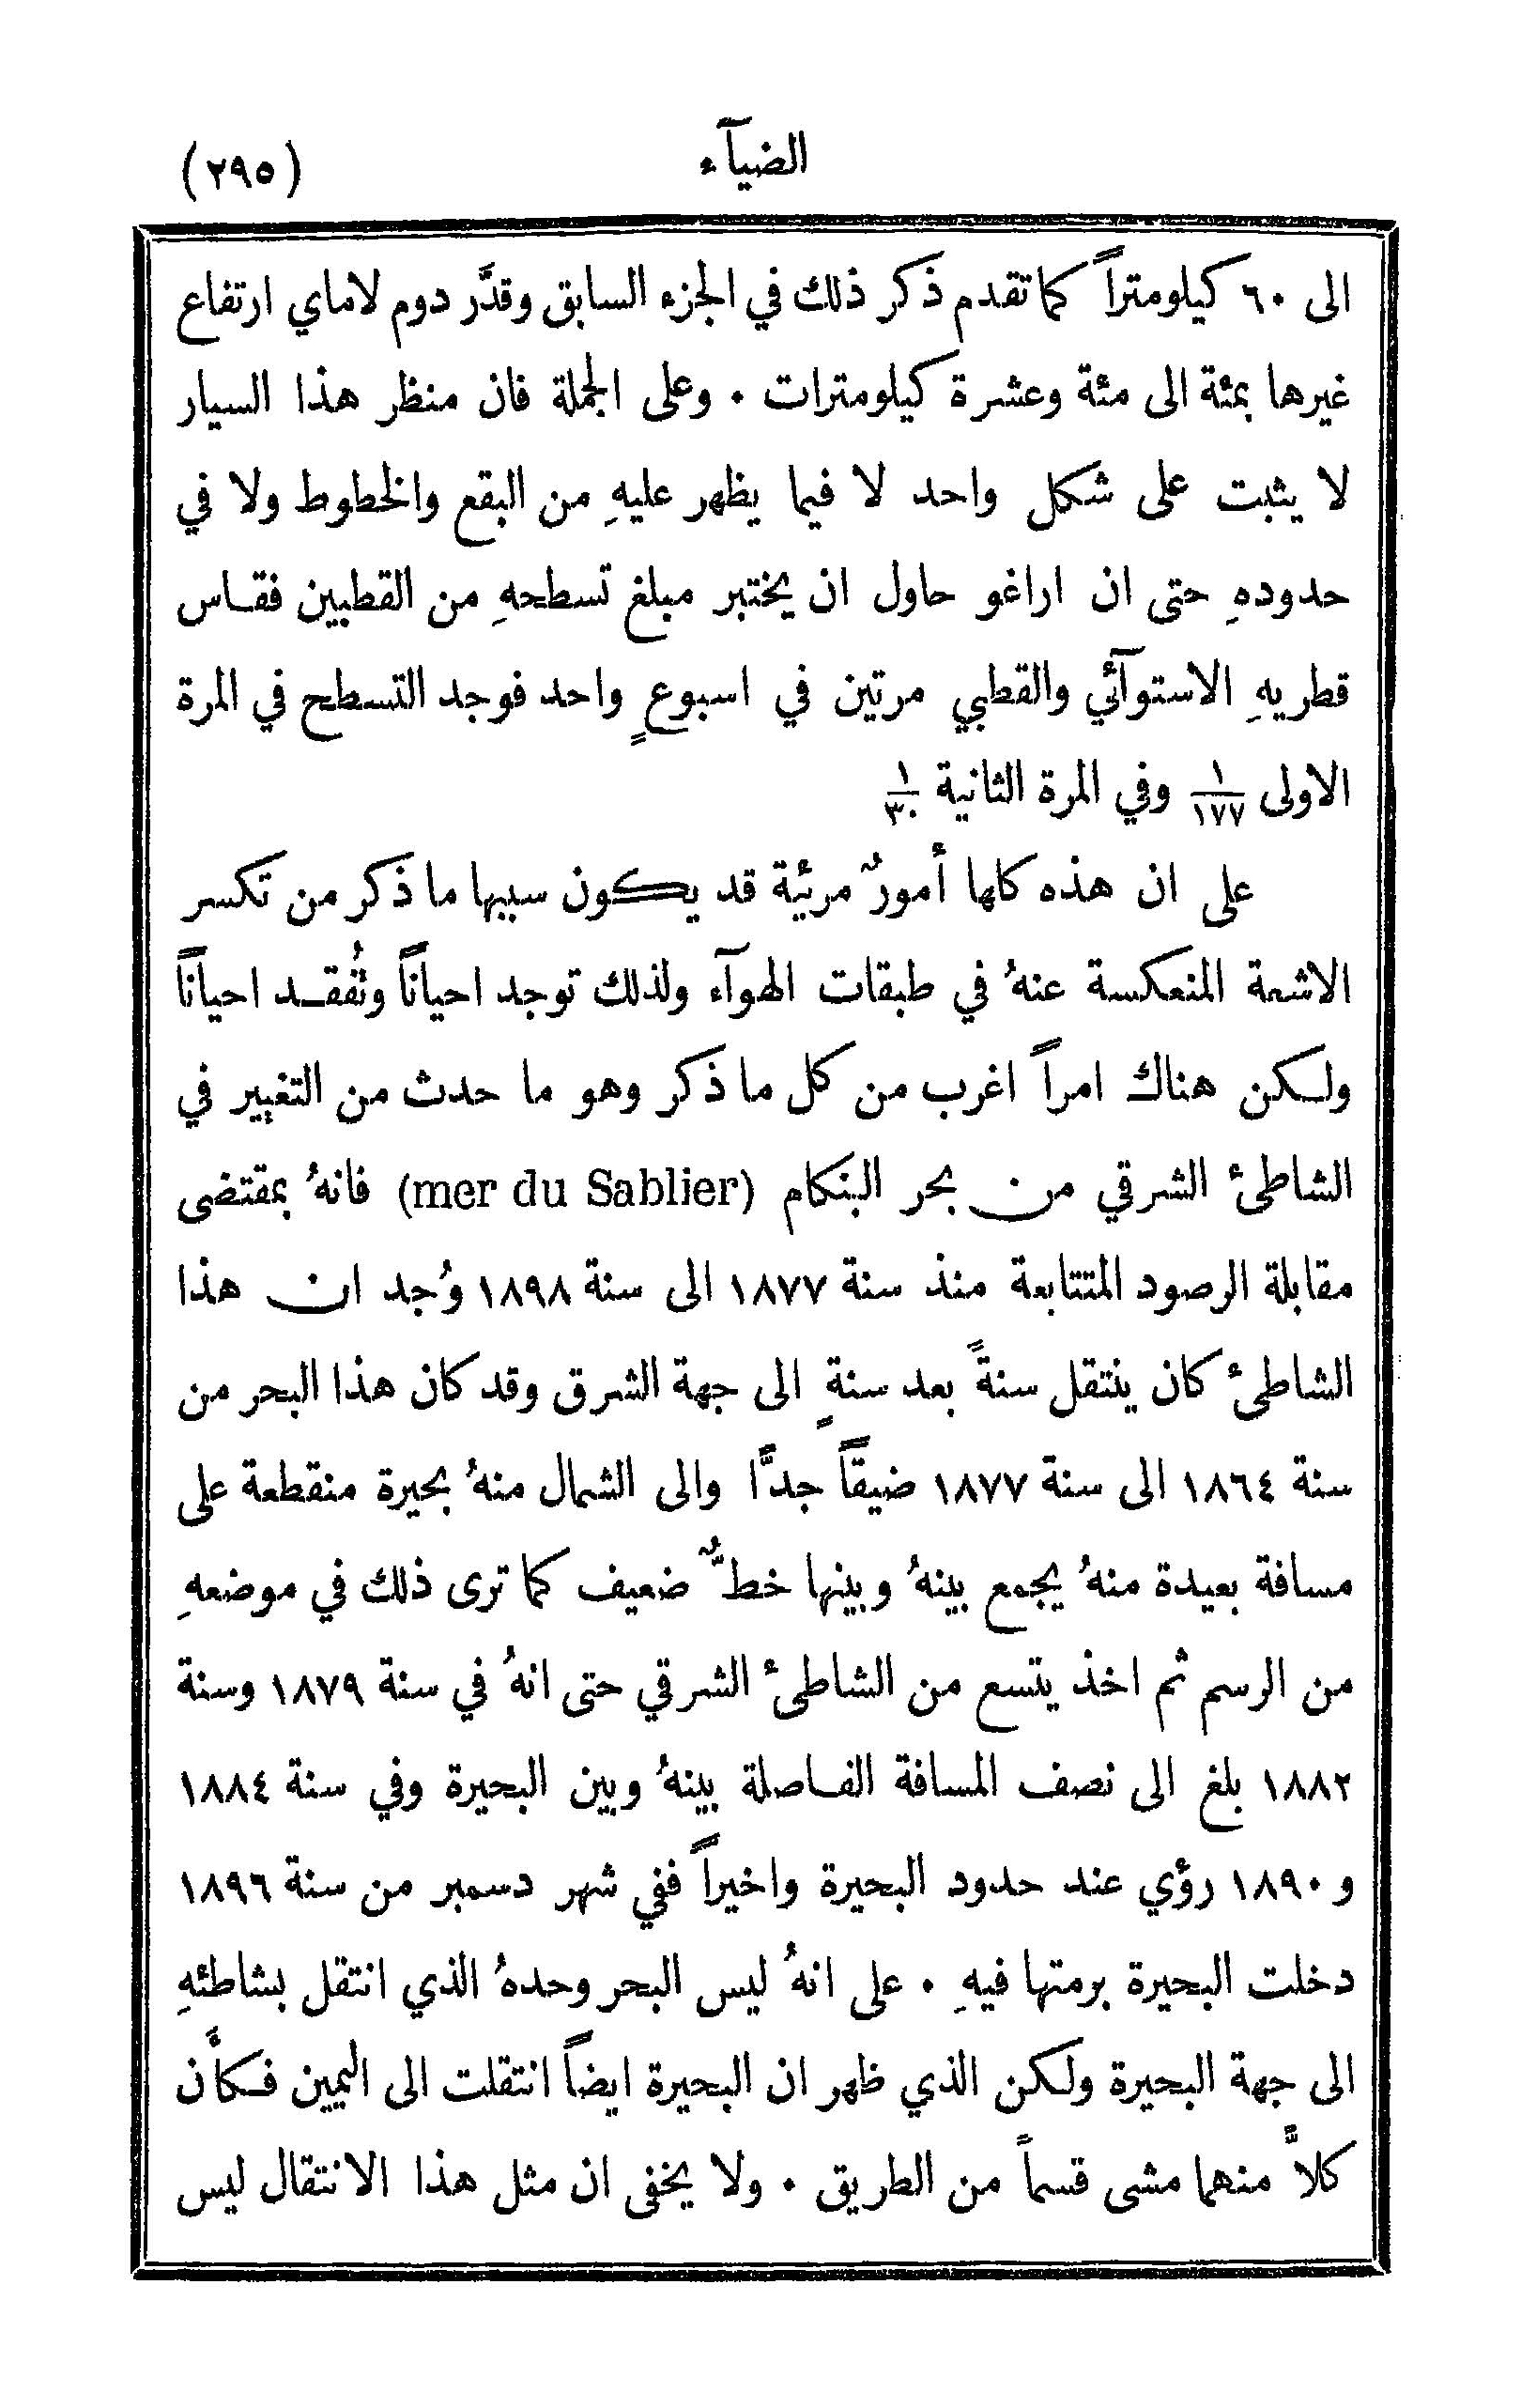 الضيآء
(٢٩٥)
الى ٦٠ كيلومتراً كما تقدم ذكر ذلك في الجزء السابق وقدَّر دوم لاماي ارتفاع
غيرها بمئة الى مئة وعشرة كيلومترات ٠ وعلى الجملة فان منظر هذا السيار
لا يثبت على شكل واحد لا فيما يظهر عليهِ من البقع والخطوط ولا في
حدودهِ حتى ان اراغو حاول ان يختبر مبلغ تسطحهِ من القطبين فقاس
قطريهِ الاستوآئي والقطبي مرتين في اسبوعٍ واحد فوجد التسطح في المرة
الاولى ١/١٧٧ وفي المرة الثانية ١/٣٠
على ان هذه كلها أمورٌ مرئية قد يكون سببها ما ذكر من تكسر
الاشعة المنعكسة عنهُ في طبقات الهوآء ولذلك توجد احياناً وتُفقد احياناً
ولكن هناك امراً اغرب من كل ما ذكر وهو ما حدث من التغيير في
الشاطئ الشرقي من بحر البنكام (mer du Sablier) فانهُ بمقتضى
مقابلة الرصود المتتابعة منذ سنة ١٨٧٧ الى سنة ١٨٩٨ وُجد ان هذا
الشاطئ كان ينتقل سنةً بعد سنةٍ الى جهة الشرق وقد كان هذا البحر من
سنة ١٨٦٤ الى سنة ١٨٧٧ ضيقاً جدًّا والى الشمال منهُ بحيرة منقطعة على
مسافة بعيدة منهُ يجمع بينهُ وبينها خطٌّ ضعيف كما ترى ذلك في موضعهِ
من الرسم ثم اخذ يتسع من الشاطئ الشرقي حتى انهُ في سنة ١٨٧٩ وسنة
١٨٨٢ بلغ الى نصف المسافة الفاصلة بينهُ وبين البحيرة وفي سنة ١٨٨٤
و ١٨٩٠ رؤي عند حدود البحيرة واخيراً ففي شهر دسمبر من سنة ١٨٩٦
دخلت البحيرة برمتها فيهِ ٠ على انهُ ليس البحر وحدهُ الذي انتقل بشاطئهِ
الى جهة البحيرة ولكن الذي ظهر ان البحيرة ايضاً انتقلت الى اليمين فكأن
كلاًّ منهما مشى قسماً من الطريق ٠ ولا يخفى ان مثل هذا الانتقال ليس